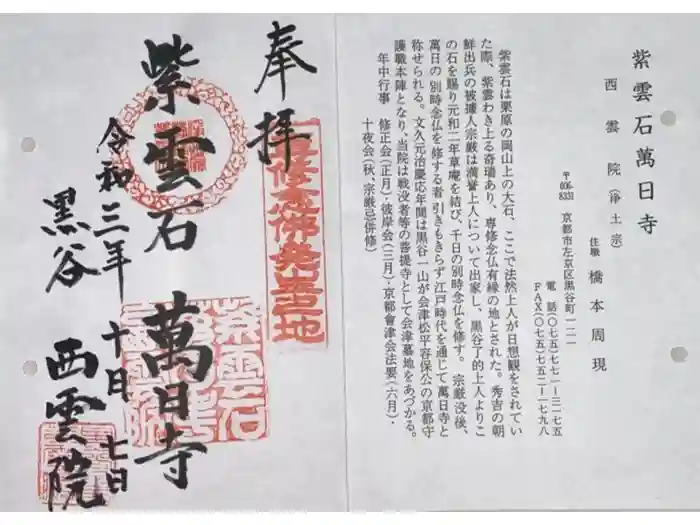 紫雲石萬日寺
西雲院(浄土宗)
住職 橋本周現
〒606-8331 京都市左京区黒谷町一二一
電話(〇七五)七七一―三一七五
FAX(〇七五)七五二―一七九八
紫雲石は栗原の岡山上の大石、ここで法然上人が日想観をされてい
た際、紫雲わき上る奇瑞あり、専修念仏有縁の地とされた。秀吉の朝
鮮出兵の被擄人宗厳は満誉上人について出家し、黒谷了的上人よりこ
の石を賜り元和二年草庵を結び、千日の別時念仏を修す。宗厳没後、
萬日の別時念仏を修する者引きもきらず江戸時代を通じて萬日寺と
称せられる。文久元治慶応年間は黒谷一山が会津松平容保公の京都守
護職本陣となり、当院は戦没者等の菩提寺として会津墓地をあづかる。
年中行事 修正会(正月)・彼岸会(三月)・京都會津会法要(六月)・
十夜会(秋、宗厳忌併修)
奉拝
専修念佛発祥地
紫雲石 萬日寺
令和三年 十月 七日
黒谷 西雲院